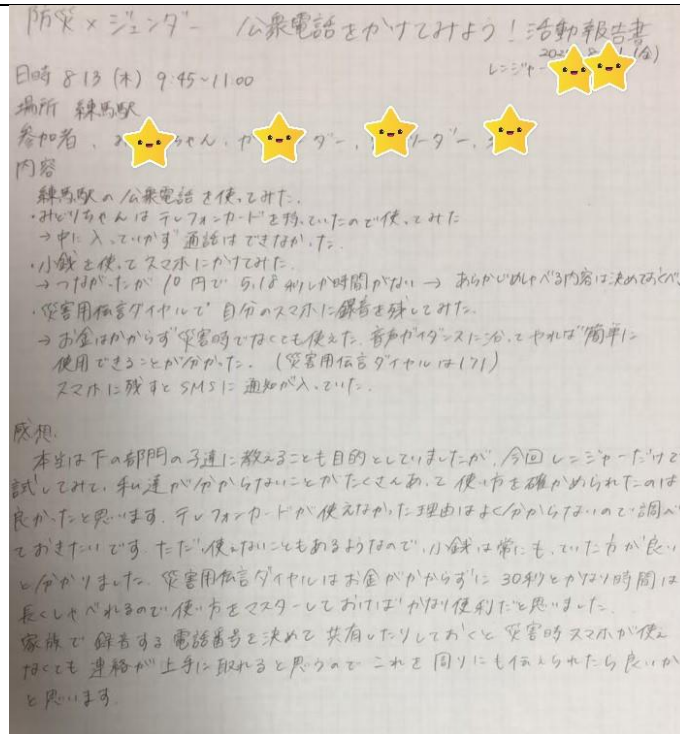 防災×ジェンダー 公衆電話をかけてみよう!活動報告書
(金)
レンジャー
日時 8.13 (木) 9:45~11:00
場所 練馬駅
参加者
内容
練馬駅の公衆電話を使ってみた.
・みどりちゃんはテレフォンカードを持っていたので使ってみた
→中に入っていかず通話はできなかった.
・小銭を使ってスマホにかけてみた.
→つながったが10円で 5,18秒しか時間がない → あらかじめしゃべる内容は決めておくべ
・災害用伝言ダイヤルで自分のスマホに録音を残してみた.
→お金はかからず災害時でなくても使えた.音声ガイダンスに沿ってやれば簡単に
使用できることが分かった. (災害用伝言ダイヤルは171)
スマホに残すとSMSに通知が入っていた.
感想.
本当は下の部門の子達に教えることも目的としていましたが,今回レンジャーだけで
試してみて,私達が分からないことがたくさんあって使い方を確かめられたのは
良かったと思います.テレフォンカードが使えなかった理由はよく分からないので調べ
ておきたいです.ただ,使えないこともあるようなので,小銭は常にもっていた方が良い
と分かりました.災害用伝言ダイヤルはお金がかからずに30秒とかなり時間は
長くしゃべれるので使い方をマスターしておけばかなり便利だと思いました.
家族で録音する電話番号を決めて共有したりしておくと災害時スマホが使え
なくても連絡が上手に取れると思うのでこれを周りにも伝えられたら良いか
と思います.